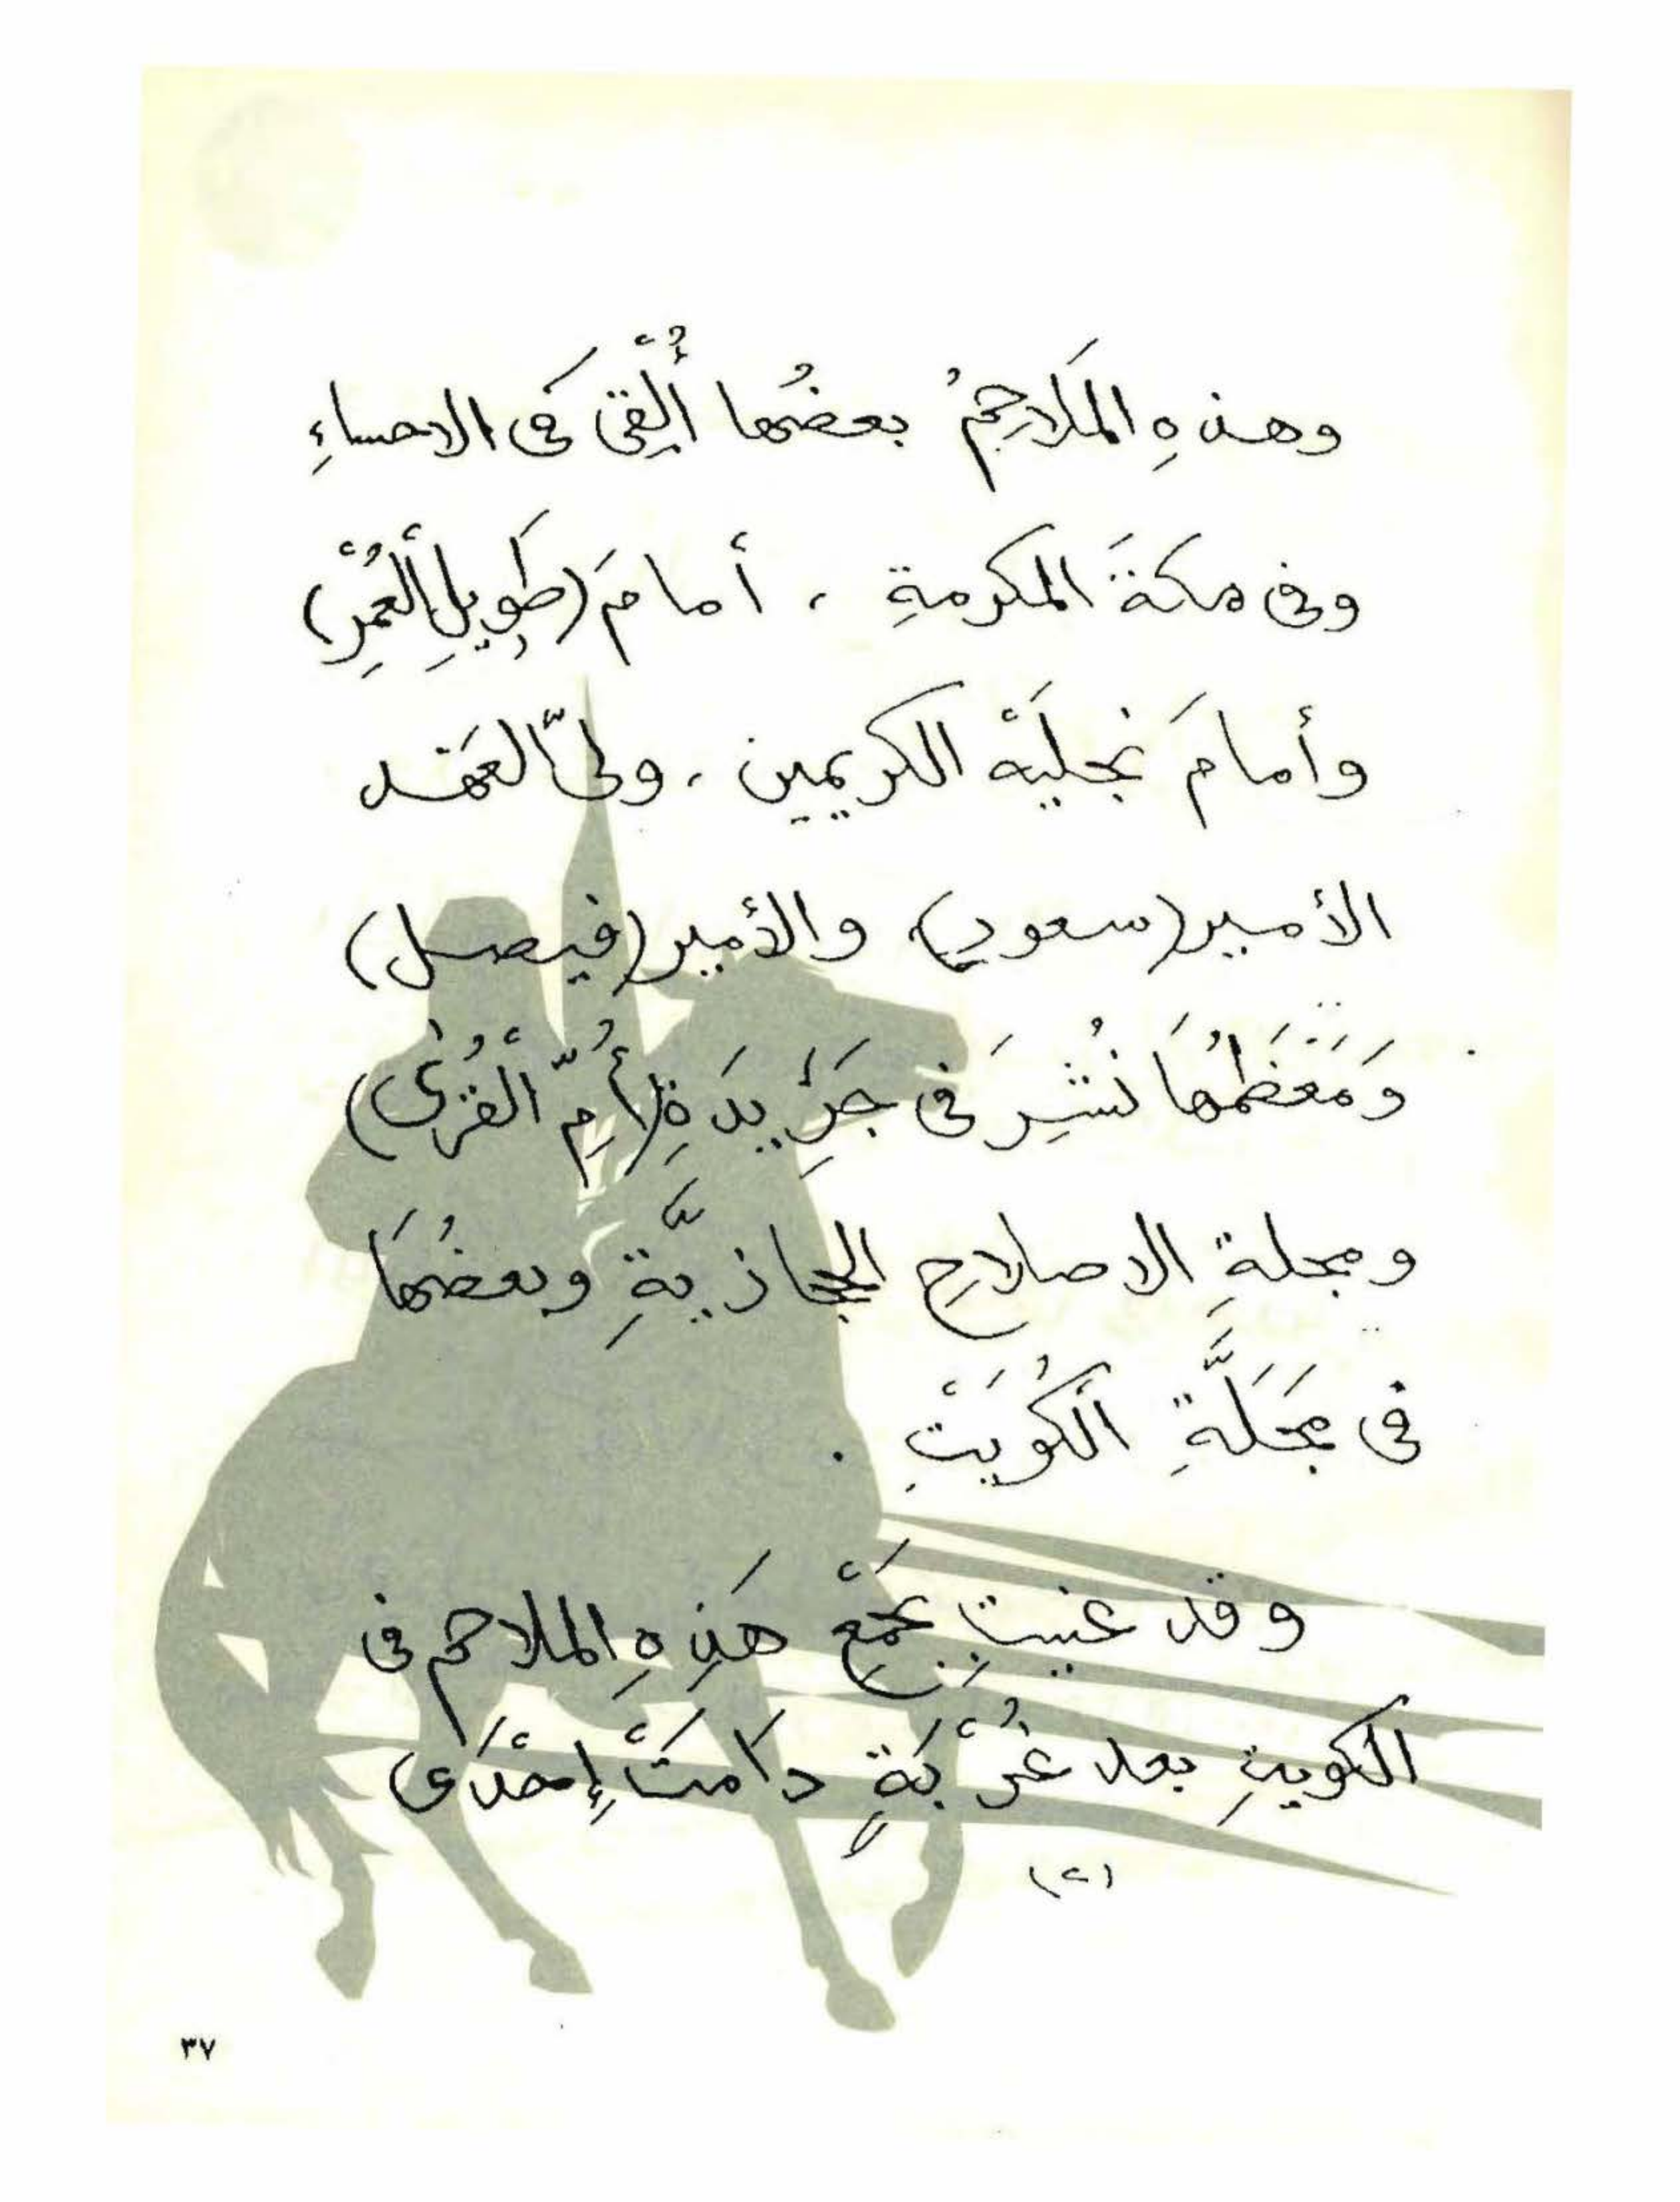 وهذهِ المَلاحِمُ بعضُها أُلْقِىَ فَى الاحساءِ
وفى مكةَ المكرمةِ ، أمامَ (طَويلِ ألْعُمْرِ)
وأمامَ نجلَيْه الكريمين ، ولىّ العَهْد
الأمير (سعود)، والأمير (فيصل)
وَمُعْظَمُهَا نُشِرَ فى جَرِيدَةِ (أُمّ الْقُرىٰ)
ومجلةِ الاصلاحِ الحجازيَّةِ وبعضُهَا
فى مَجَلَّةِ ألْكُوَيْتِ .
وقد عنيت بِجَمْعِ هَذِهِ الملاحم فى
الكويتِ بعد غُرْبَةٍ دَامَتْ إِحْدَى
(٢)
٣٧